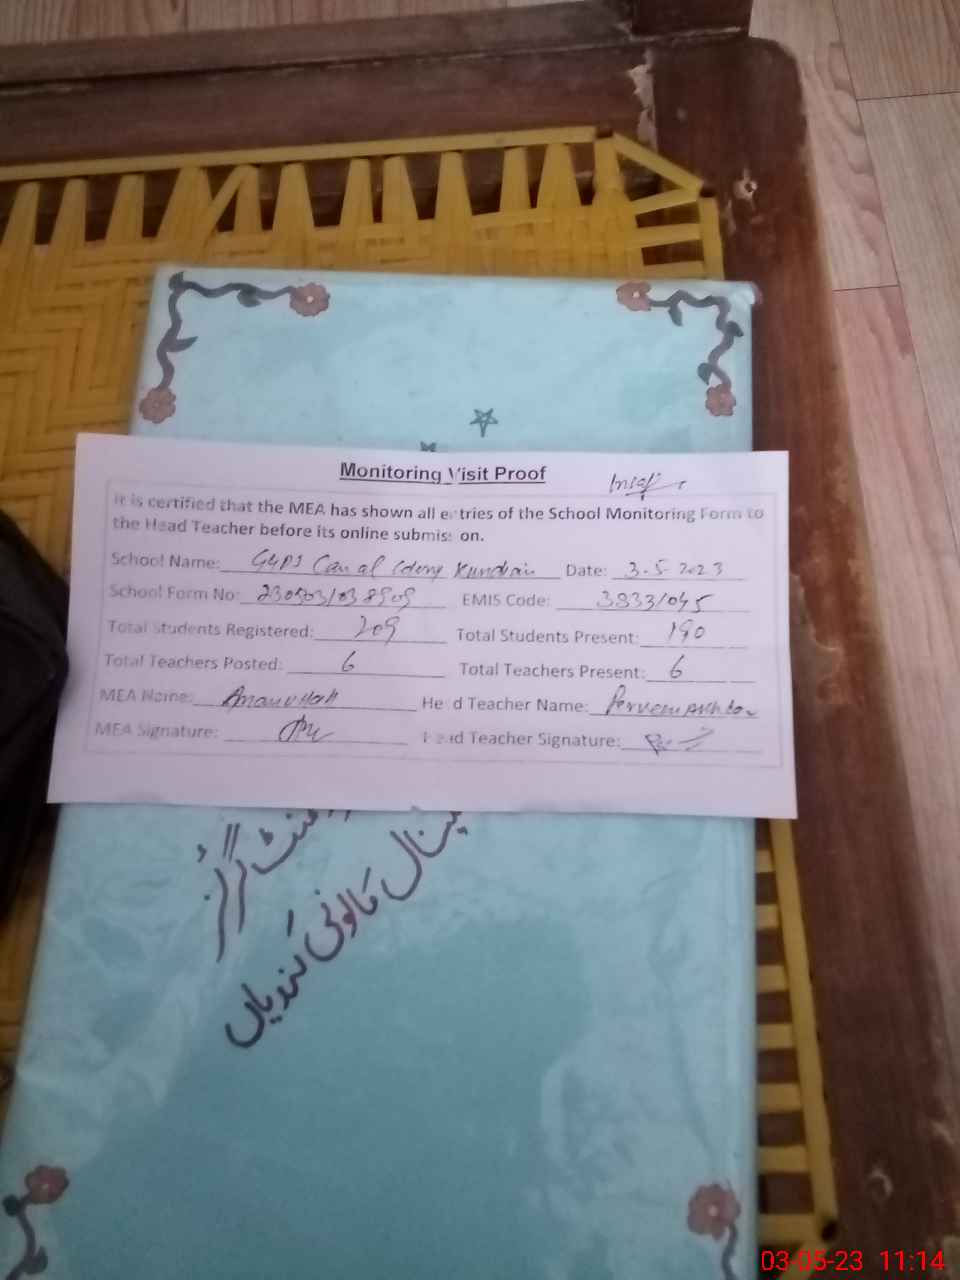 Monitoring Visit Proof
It is certified that the MEA has shown all entries of the School Monitoring Form to
the Head Teacher before its online submission.
School Name: Canal Colony Kundian Date: 3-5-2023
School Form No: EMIS Code:
Total Students Registered: 209 Total Students Present: 190
Total Teachers Posted: 6 Total Teachers Present: 6
MEA Name: Amanullah Head Teacher Name: Parveen Akhtar
MEA Signature: Head Teacher Signature:
گرلز
کینال کالونی کندیاں
03-05-23 11:14